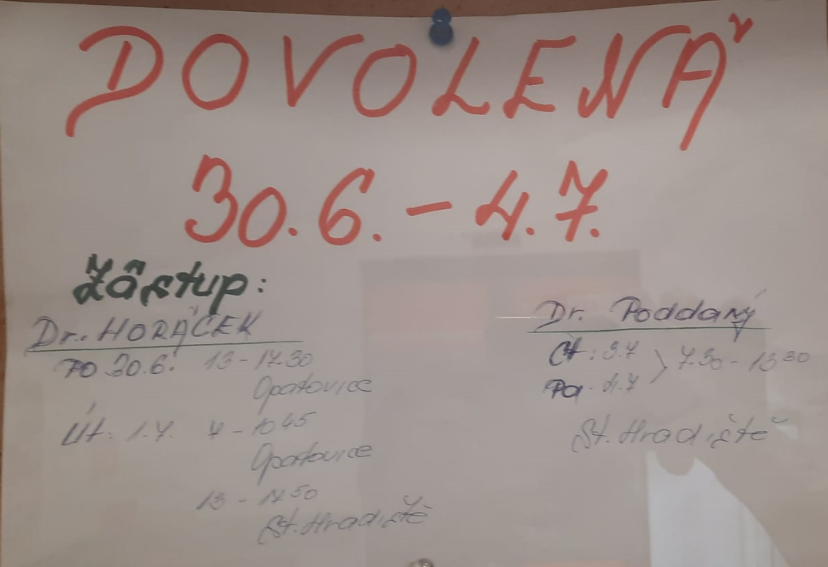 DOVOLENÁ
30.6. - 4.7.
Zástup:
Dr. HORÁČEK
PO 30.6. 13 - 17.30
Opatovice
Út: 1.7. 7 - 10 45
Opatovice
13 - 17 50
St. Hradiště
Dr. Poddaný
Čt: 3.7 > 7.30 - 13 30
Pá. 4.7
St. Hradiště